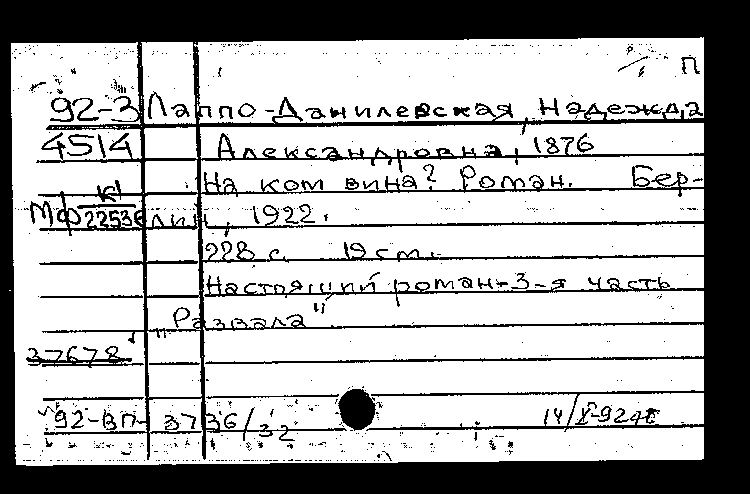 П
92-3 Лаппо-Данилевская, Надежда
4514 Александровна, 1876
На ком вина? Роман. Бер-
К1
Мф 22536 лин, 1922.
228 с. 19 cm.
Настоящий роман-3-я часть
"Развала".
37678
92-ВП- 3736/32 14/X-92